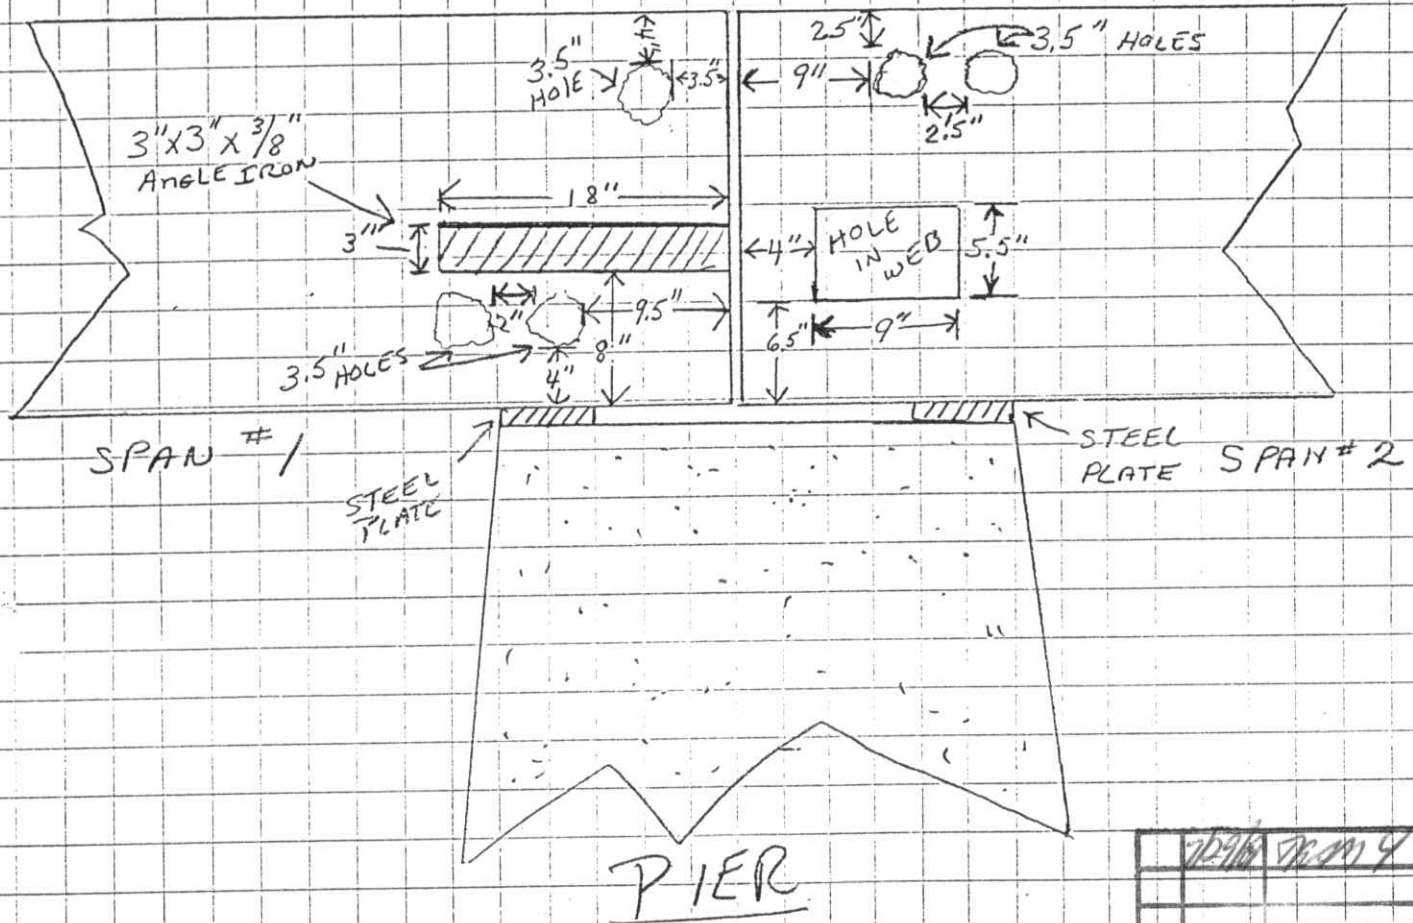 4"
3.5"
HOLE
3.5"
25"
3.5" HOLES
9"
2.5"
3"X3"X3/8"
ANGLE IRON
18"
3"
4"
HOLE
IN
WEB
5.5"
2"
9.5"
8"
6.5"
9"
3.5" HOLES
4"
SPAN #1
STEEL
PLATE
STEEL
PLATE
SPAN #2
PIER